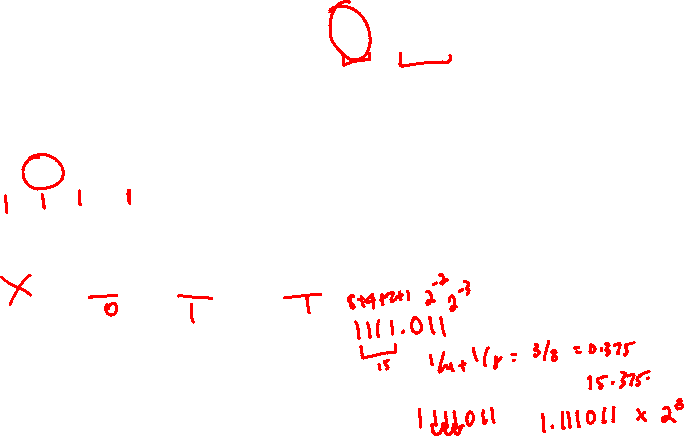 1 1 1 1
X 0 1 1
8+4+2+1 2^-2 2^-3
1111.011
15
1/4 + 1/8 = 3/8 = 0.375
15.375
1111011 1.111011 x 2^3